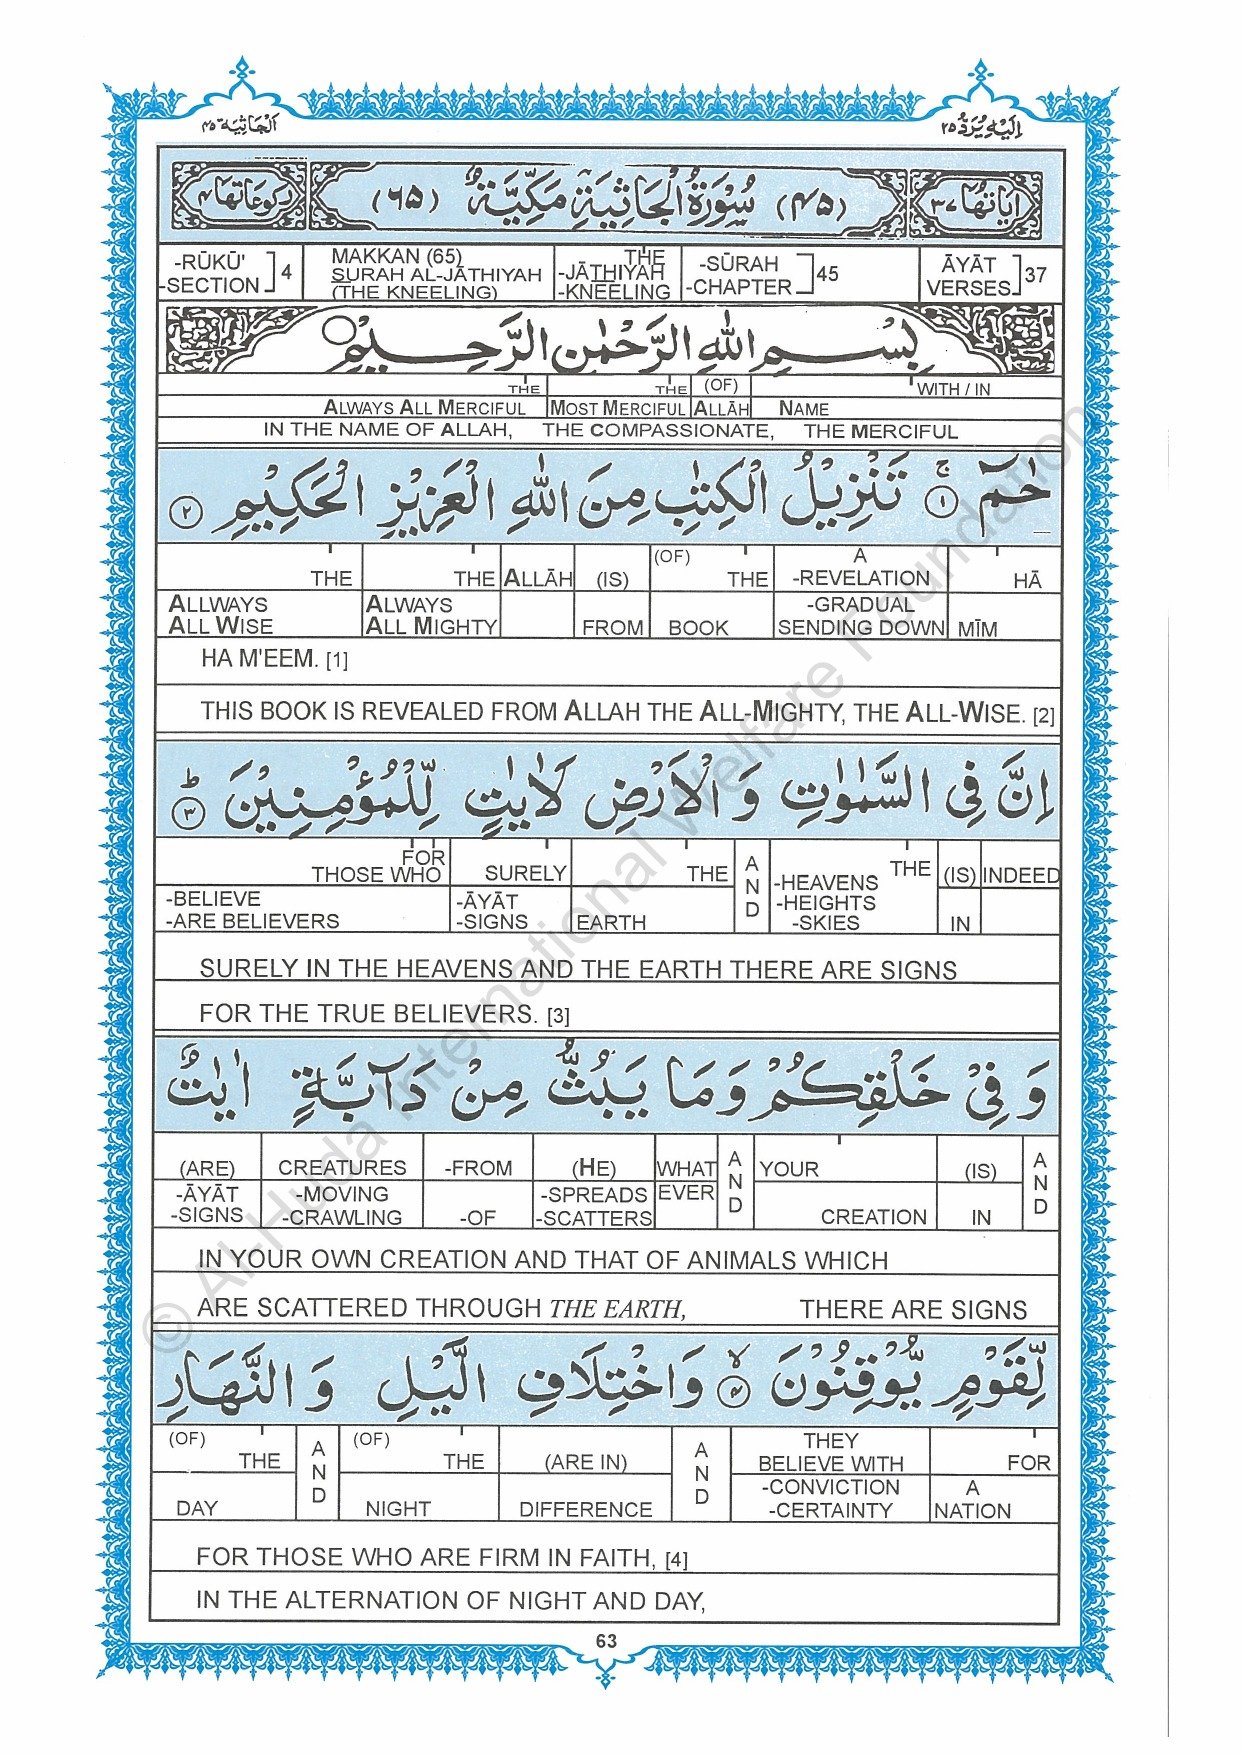 اَلْجَاثِيَة ٤٥
اِلَيْهِ يُرَدُّ ٢٥
اٰيَاتُهَا ٣٧
(٤٥) سُوْرَةُ الْجَاثِيَةِ مَكِّيَّةٌ (٦٥)
رُكُوْعَاتُهَا ٤
-RŪKŪ' -SECTION ] 4
MAKKAN (65) SURAH AL-JĀTHIYAH (THE KNEELING)
THE -JĀTHIYAH -KNEELING
-SŪRAH -CHAPTER ] 45
ĀYĀT VERSES ] 37
بِسْمِ اللهِ الرَّحْمٰنِ الرَّحِيْمِ
THE THE (OF) WITH / IN
ALWAYS ALL MERCIFUL MOST MERCIFUL ALLĀH NAME
IN THE NAME OF ALLAH, THE COMPASSIONATE, THE MERCIFUL
حٰمٓ ۚ ﴿١﴾ تَنْزِيْلُ الْكِتٰبِ مِنَ اللهِ الْعَزِيْزِ الْحَكِيْمِ ﴿٢﴾
THE THE ALLĀH (IS) (OF) THE A -REVELATION HĀ
ALLWAYS ALL WISE ALWAYS ALL MIGHTY FROM BOOK -GRADUAL SENDING DOWN MĪM
HA M'EEM. [1]
THIS BOOK IS REVEALED FROM ALLAH THE ALL-MIGHTY, THE ALL-WISE. [2]
اِنَّ فِي السَّمٰوٰتِ وَ الْاَرْضِ لَاٰيٰتٍ لِّلْمُؤْمِنِيْنَ ﴿٣﴾ ؕ
FOR THOSE WHO SURELY THE AND THE (IS) INDEED
-BELIEVE -ARE BELIEVERS -ĀYĀT -SIGNS EARTH -HEAVENS -HEIGHTS -SKIES IN
SURELY IN THE HEAVENS AND THE EARTH THERE ARE SIGNS
FOR THE TRUE BELIEVERS. [3]
وَ فِيْ خَلْقِكُمْ وَ مَا يَبُثُّ مِنْ دَآبَّةٍ اٰيٰتٌ
(ARE) CREATURES -FROM (HE) WHAT AND YOUR (IS) AND
-ĀYĀT -SIGNS -MOVING -CRAWLING -OF -SPREADS -SCATTERS EVER CREATION IN
IN YOUR OWN CREATION AND THAT OF ANIMALS WHICH
ARE SCATTERED THROUGH THE EARTH, THERE ARE SIGNS
لِّقَوْمٍ يُّوْقِنُوْنَ ﴿٤﴾ ۙ وَ اخْتِلَافِ الَّيْلِ وَ النَّهَارِ
(OF) THE AND (OF) THE (ARE IN) AND THEY BELIEVE WITH FOR
DAY NIGHT DIFFERENCE -CONVICTION -CERTAINTY A NATION
FOR THOSE WHO ARE FIRM IN FAITH, [4]
IN THE ALTERNATION OF NIGHT AND DAY,
63
© Al-Huda International Welfare Foundation